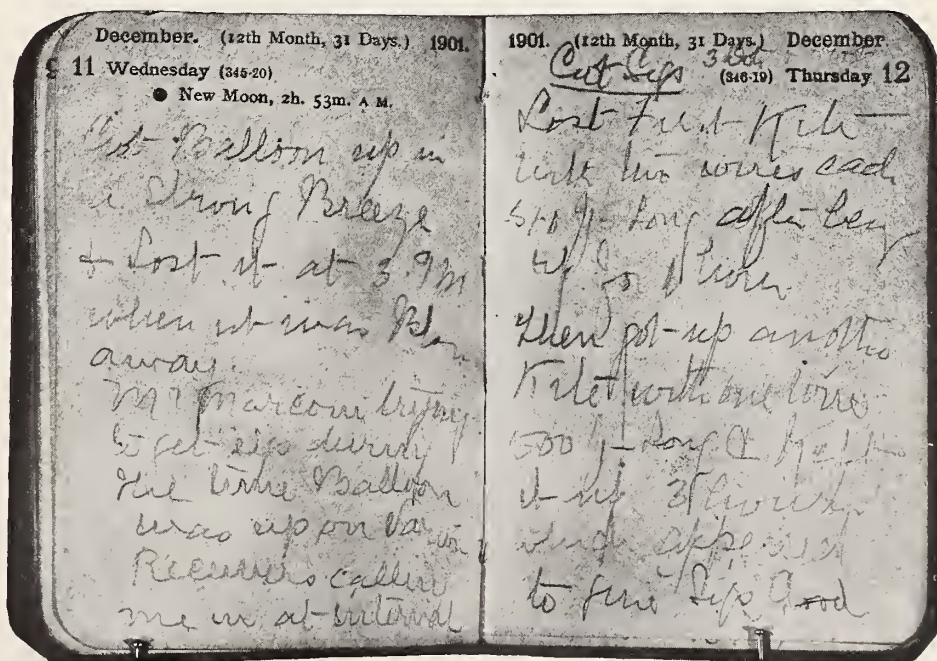 December. (12th Month, 31 Days.) 1901.
11 Wednesday (345-20)
● New Moon, 2h. 53m. A M.
Balloon up in
a Strong Breeze
& Lost it at 3. PM
when it was
away.
Mr Marconi trying
to get sigs during
the time Balloon
was up on
Receivers calling
me in at interval
1901. (12th Month, 31 Days.) December
(346-19) Thursday 12
Sigs
Lost First Kite
with two wires each
Long after being
up for 1 hour
then got up another
Kite with one wire
500 Long & Kept
it up 3 hours
which appeared
to give Sigs Good